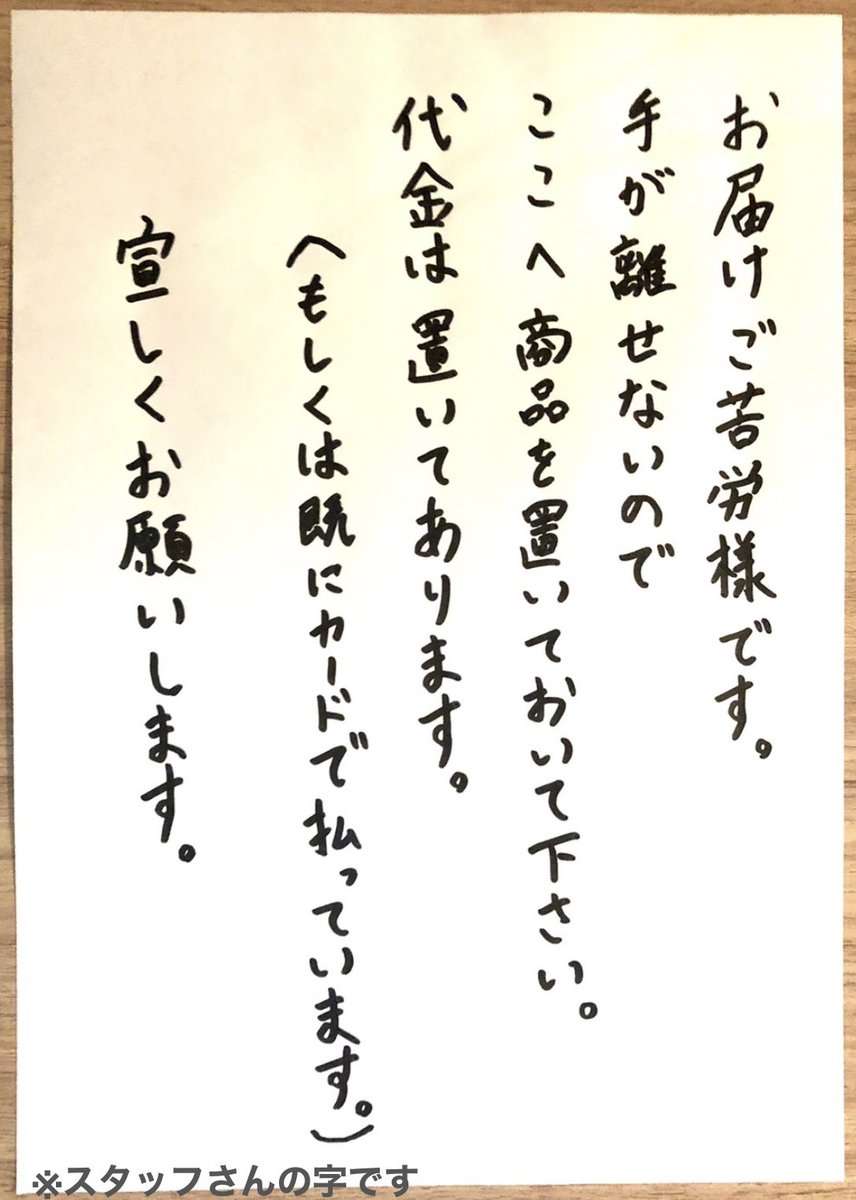 お届けご苦労様です。
手が離せないので
ここへ商品を置いておいて下さい。
代金は置いてあります。
(もしくは既にカードで払っています。)
宣しくお願いします。
※スタッフさんの字です